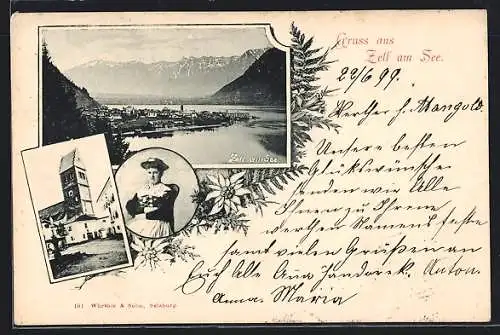 Gruss aus
Zell am See.
22/6 99.
Werther H. Mangold.
Unsere besten
Glückswünsche
senden wir Alle
Ihnen zu Ihrem
werthen Namensfeste
samt vielen Grüßen an
Euch Alle Anton
Anna Maria
Zell am See
181 Würthle & Sohn, Salzburg.